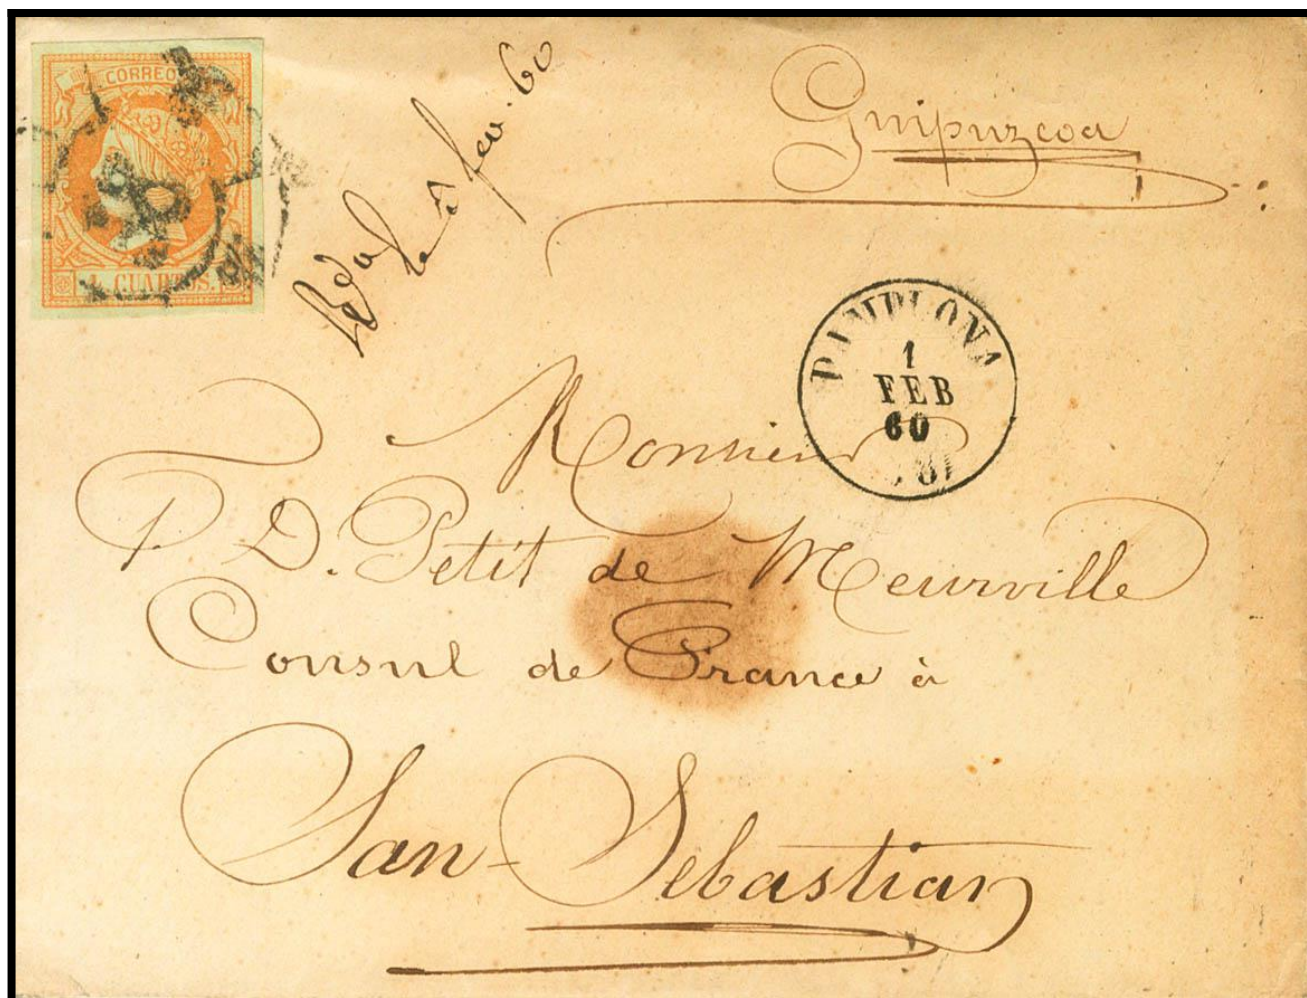 CORREOS
4 CUARTOS.
fev. 60
Guipuzcoa
PAMPLONA
1
FEB
60
Monsieur
D. Petit de Meurville
Consul de France à
San-Sebastian